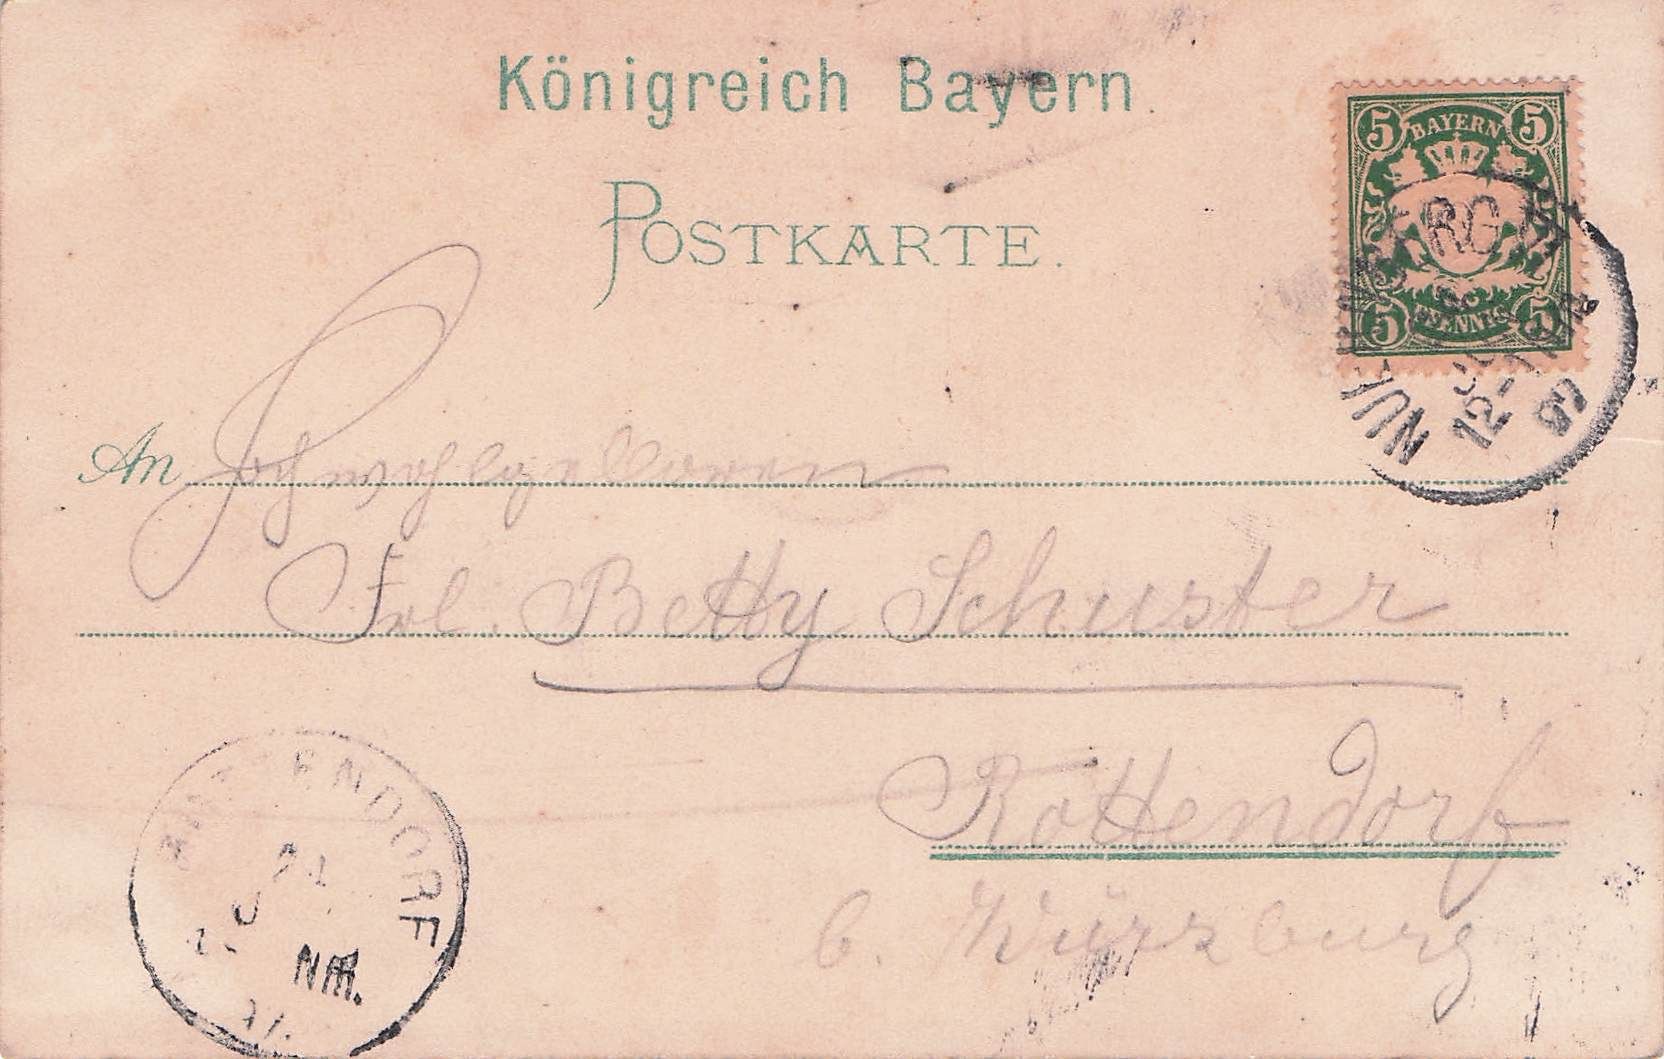 Königreich Bayern.
POSTKARTE.
BAYERN
5 5
5 PFENNIG 5
12-1
An Hochwohlgeboren
Frl. Betty Schuster
Rottendorf
b. Würzburg
NM.